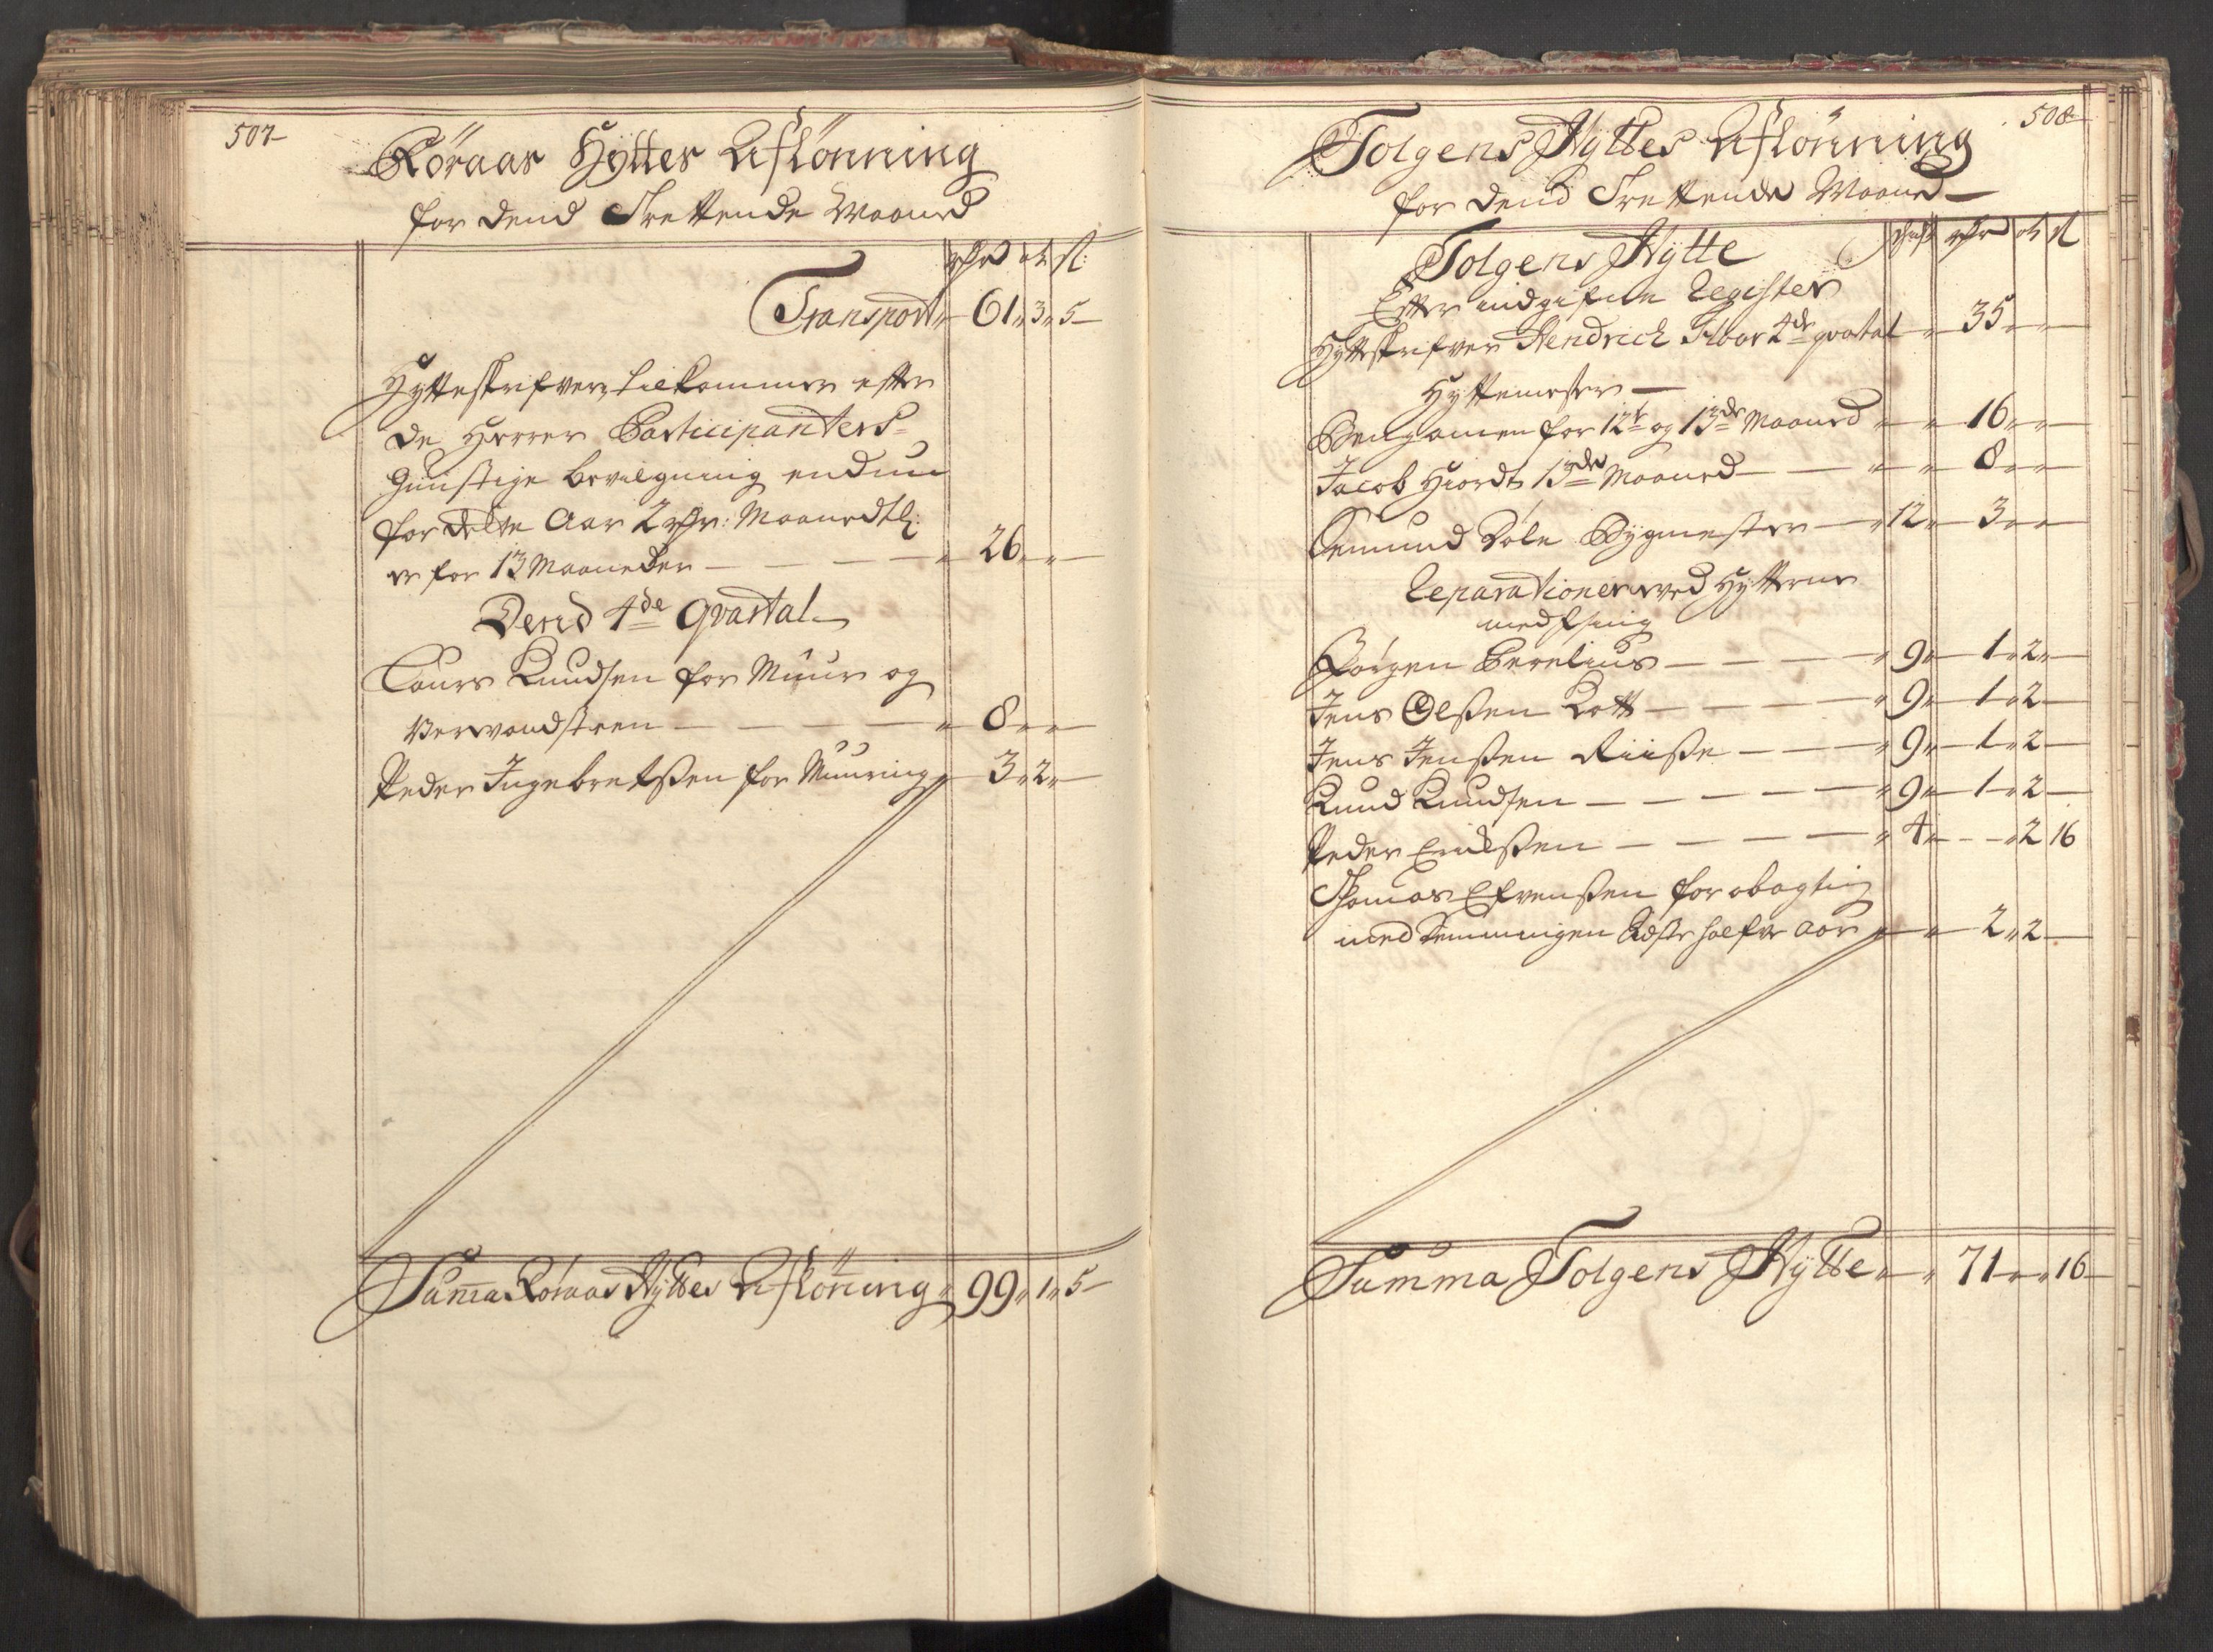 507
Röraas Hyttes Aflönning
for dend Trettende Maaned
rdr ort s:
Transport 61 3 5
Hytteskrifveren tilkommer efter
de Herrer Participanters
Gunstige bevilgning endnu
for dette Aar 2 rdr: Maanedtl:
er for 13 Maaneder 26
Dend 4de Qvartal
Laurs Knudsen for Muur og
Verwandsteen 8
Peder Ingebretßen for Muuring 3 2
Summa Röraas Hyttes Aflöning 99 1 5
508
Tolgens Hyttes Aflönning
for dend Trettende Maaned
Tolgens Hytte rdr ort s
Efter indgifne Register
Hytteskrifver Hendrich 4de qvartal 35
Hyttemester
Bengamen for 12te og 13de Maaned 16
Jacob Hiordt 13de Maaned 8
Semund Dole Bygmester 12 3
Reparationer ved Hytterne
Jörgen Berelius 9 1 2
Jens Olßen Kott 9 1 2
Jens Jenßen Riise 9 1 2
Knud Knudsen 9 1 2
Peder Erichßen 4 2 16
Thomas Efvenßen for obagting
med Demningen Sidste halfve Aar 2 2
Summa Tolgens Hytte 71 16